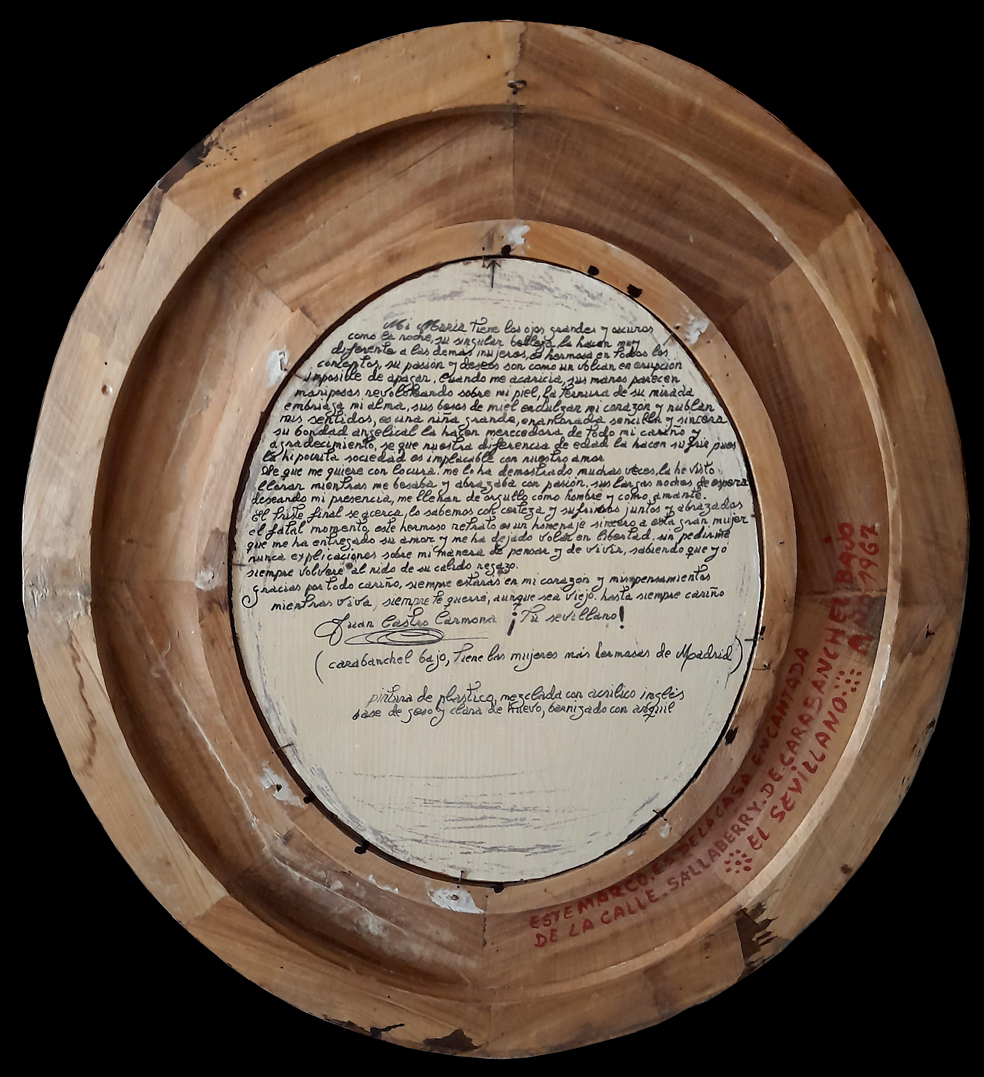 Mi María tiene los ojos grandes y oscuros
como la noche, su singular belleza, la hacen muy
diferente a las demas mujeres, es hermosa en todos los
conceptos, su pasión y deseos son como un volcan en erupcion
imposible de apagar, cuando me acaricia, sus manos parecen
mariposas revoloteando sobre mi piel, la ternura de su mirada
embriaga mi alma, sus besos de miel endulzan mi corazón y nublan
mis sentidos, es una niña grande, enamorada sencilla y sincera
su bondad angelical la hacen merecedora de todo mi cariño y
agradecimiento, se que nuestra diferencia de edad la hacen sufrir pues
la hipocrita sociedad es implacable con nuestro amor
Se que me quiere con locura. me lo ha demostrado muchas veces, la he visto
llorar mientras me besaba y abrazaba con pasión, sus largas noches de espera
deseando mi presencia, me llenan de orgullo como hombre y como amante.
El triste final se acerca, lo sabemos con certeza y sufrimos juntos y abrazados
el fatal momento, este hermoso retrato es un homenaje sincero a esta gran mujer
que me ha entregado su amor y me ha dejado volar en libertad, sin pedirme
nunca explicaciones sobre mi manera de pensar y de vivir, sabiendo que yo
siempre volvere al nido de su calido regazo.
gracias por todo cariño, siempre estaras en mi corazón y mis pensamientos
mientras viva, siempre te querre, aunque sea viejo. hasta siempre cariño
Juan Castro Carmona ¡Tu sevillano!
(carabanchel bajo, tiene las mujeres más hermosas de Madrid)
pintura de plastico, mezclada con acrilico inglés
base de yeso y clara de huevo, barnizado con
ESTE MARCO. ES DE LA CASA ENCANTADA
DE LA CALLE. SALLABERRY. DE CARABANCHEL BAJO
EL SEVILLANO AÑO 1967